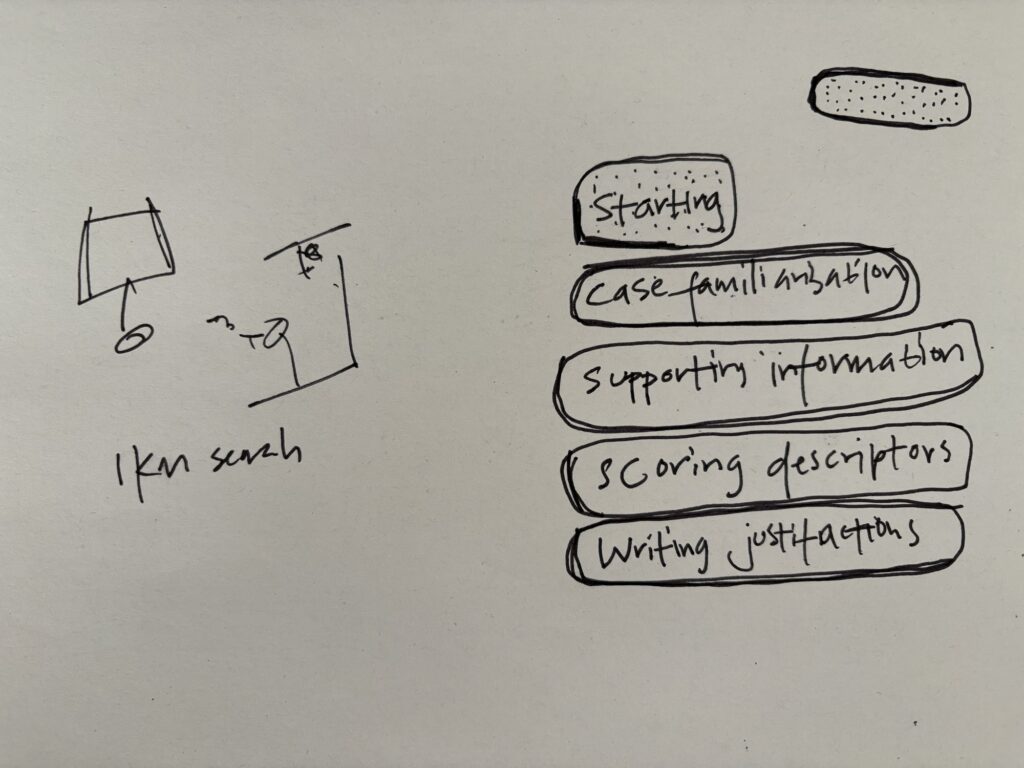 Starting
case familiarisation
supporting information
1km search
scoring descriptors
Writing justifactions